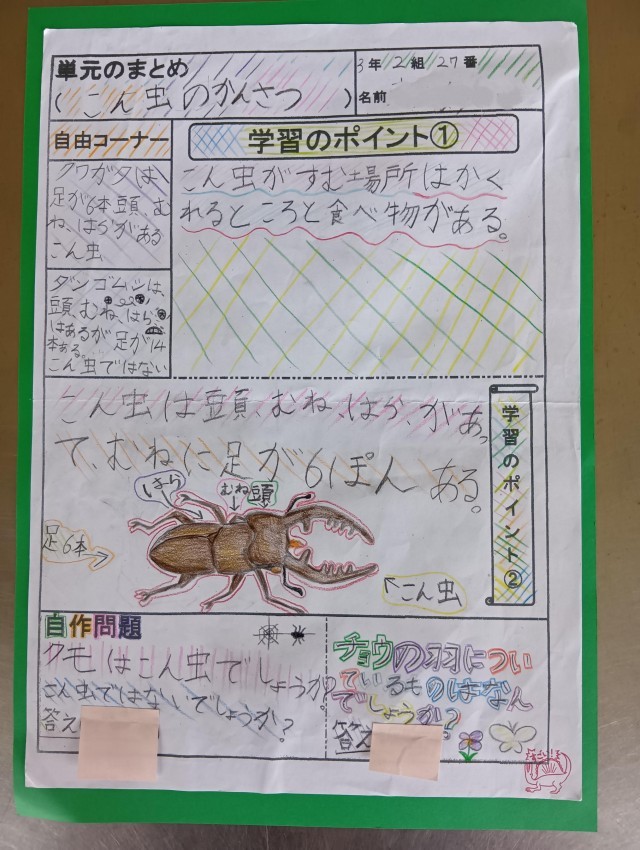 単元のまとめ
(こん虫のかんさつ)
3年2組27番
名前
自由コーナー
クワガタは、
足が6本頭、む
ね、はらがある
こん虫
ダンゴムシは、
頭、むね、はら、
はあるが足が14
本ある。
こん虫ではない
学習のポイント①
こん虫がすむ場所はかく
れるところと食べ物がある。
こん虫は頭、むね、はら、があっ
て、むねに足が6ぽんある。
学習のポイント②
はら
むね
頭
足6本
こん虫
自作問題
クモはこん虫でしょうか?
こん虫ではないでしょうか?
答え
チョウの羽につい
ているものはなん
でしょうか?
答え